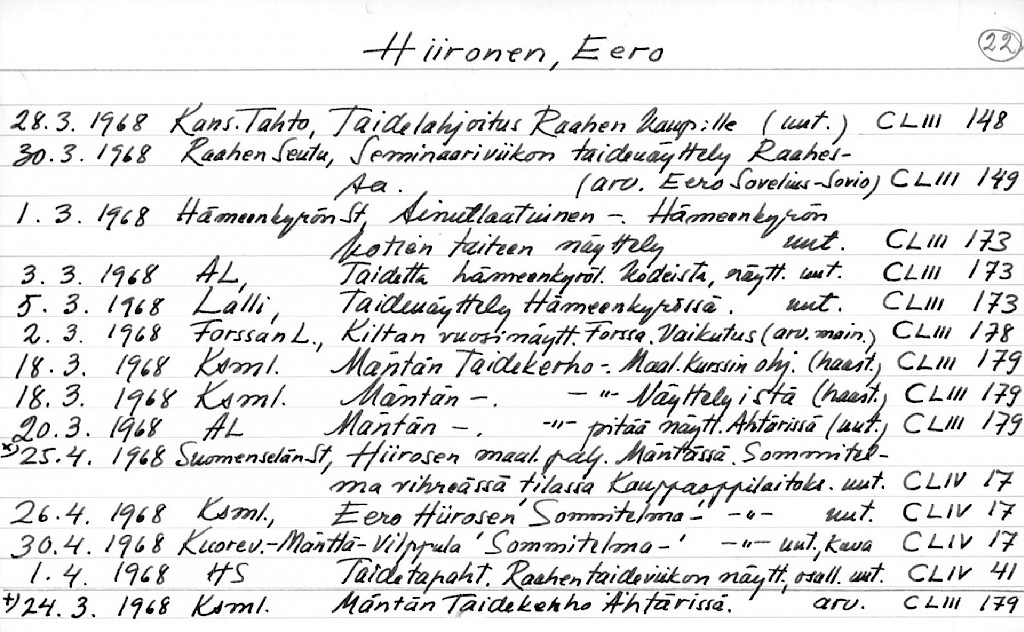 Hiironen, Eero 22
28.3. 1968 Kans.Tahto, Taidelahjoitus Raahen kaup:lle (uut.) CLIII 148
30.3. 1968 Raahen Seutu, Seminaariviikon taidenäyttely Raahes-
sa. (arv. Eero Sovelius-Sovio) CLIII 149
1.3. 1968 Hämeenkyrön St, Ainutlaatuinen -. Hämeenkyrön
kotien taiteen näyttely uut. CLIII 173
3.3. 1968 AL, Taidetta hämeenkyröl. kodeista, näytt. uut. CLIII 173
5.3. 1968 Lalli, Taidenäyttely Hämeenkyrössä. uut. CLIII 173
2.3. 1968 Forssan L., Killan vuosinäytt. Forssa. Vaikutus (arv. main.) CLIII 178
18.3. 1968 Ksml. Mäntän Taidekerho -. Maal. kurssin ohj. (haast.) CLIII 179
18.3. 1968 Ksml. Mäntän -. -"- Näyttelyistä (haast.) CLIII 179
20.3. 1968 AL Mäntän -. -"- pitää näytt. Ähtärissä (uut.) CLIII 179
x) 25.4. 1968 Suomenselän St, Hiirosen maal. palj. Mäntässä. Sommitel-
ma vihreässä tilassa Kauppaoppilaitoks. uut. CLIV 17
26.4. 1968 Ksml., Eero Hiirosen 'Sommitelma-' -"- uut. CLIV 17
30.4. 1968 Kuorev.-Mänttä-Vilppula 'Sommitelma-' -"- uut., kuva CLIV 17
1.4. 1968 HS Taidetapaht. Raahen taideviikon näytt, osall. uut. CLIV 41
+) 24.3. 1968 Ksml. Mäntän Taidekerho Ähtärissä. arv. CLIII 179